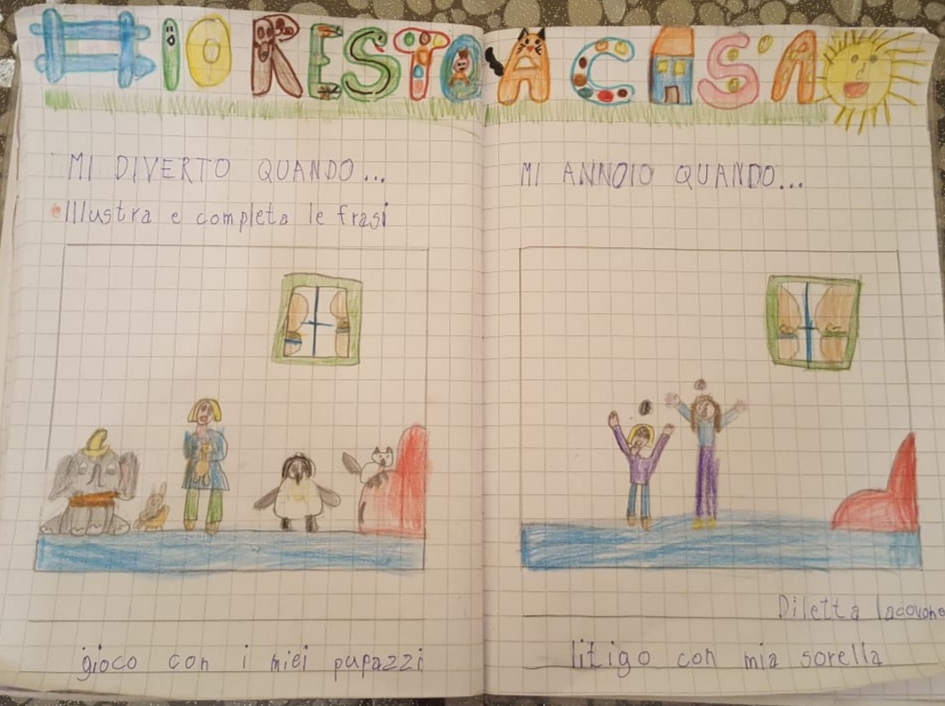 #IO RESTO A CASA
MI DIVERTO QUANDO...
Illustra e completa le frasi
gioco con i miei pupazzi
MI ANNOIO QUANDO...
Diletta Iadovone
litigo con mia sorella